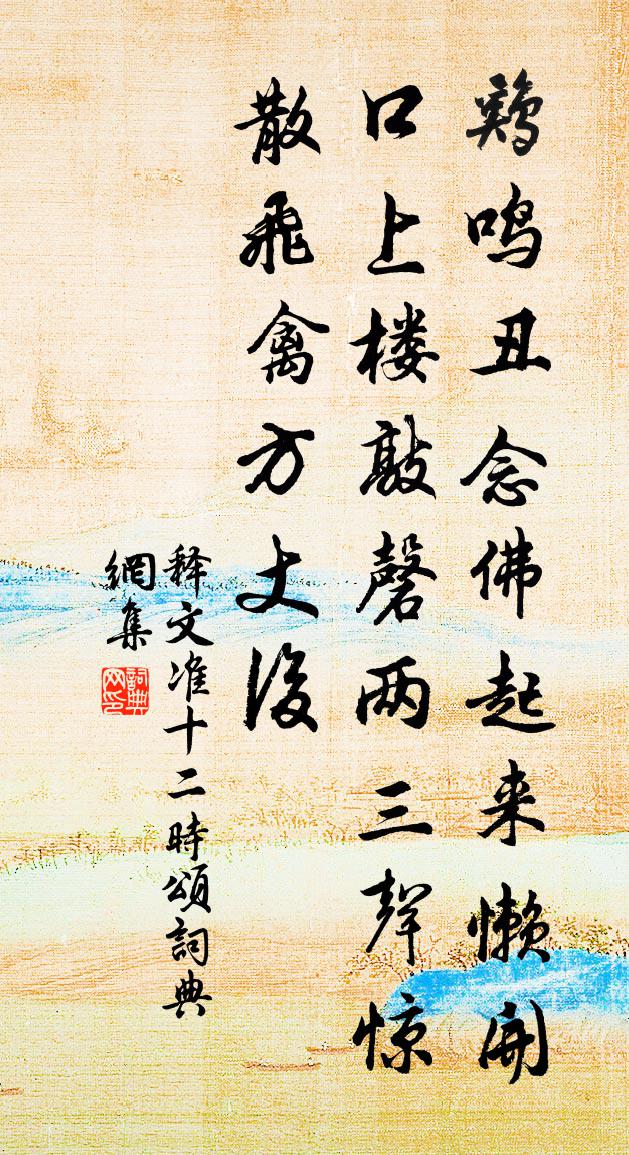 鸡鸣丑念佛起来懒开
口上楼敲磬两三声惊
散飞禽方丈後
释文准十二時頌詞典
網集
詞典
网印